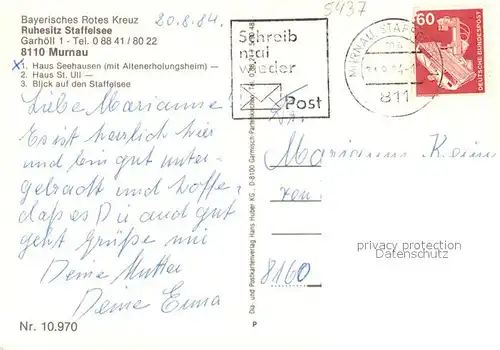 Bayerisches Rotes Kreuz
Ruhesitz Staffelsee
Garhöll 1 - Tel. 0 88 41 / 80 22
8110 Murnau
20.8.84.
5437
x 1. Haus Seehausen (mit Altenerholungsheim) —
2. Haus St. Ull —
3. Blick auf den Staffelsee
Schreib
mal
wieder
Post
MURNAU, STAFF
811
60
DEUTSCHE BUNDESPOST
Liebe Marianne
Es ist herrlich hier
und bin gut unter-
gebracht und hoffe
daß es Dir auch gut
geht Grüße mir
Deine Mutter
Deine Erna
Marianne
8160
Dia- und Postkartenverlag Hans Huber KG., D-8100 Garmisch-Partenkirchen
privacy protection
VERITABLE
Nr. 10.970
P